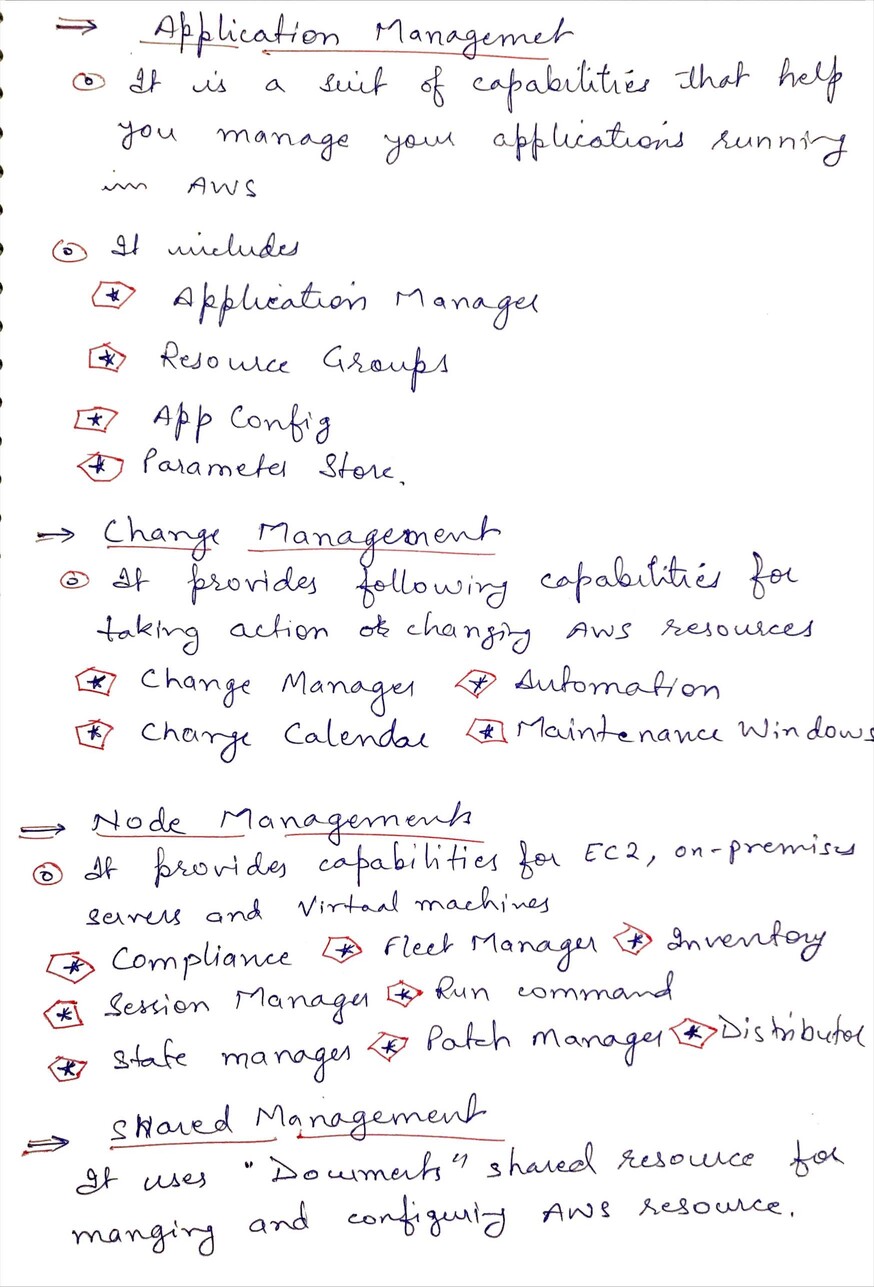 ⇒ Application Managemet
⊙ It is a suit of capabilities that help
you manage your applications running
in AWS
⊙ It includes
* Application Manager
* Resource Groups
* App Config
* Parameter Store.
⇒ Change Management
⊙ It provides following capabilities for
taking action or changing AWS resources
* Change Manager * Automation
* Change Calendar * Maintenance Windows
⇒ Node Managements
⊙ It provides capabilities for EC2, on-premises
servers and Virtual machines
* Compliance * Fleet Manager * Inventory
* Session Manager * Run command
* State manager * Patch Manager * Distributor
⇒ Shared Management
It uses "Documents" shared resource for
manging and configuring AWS resource.